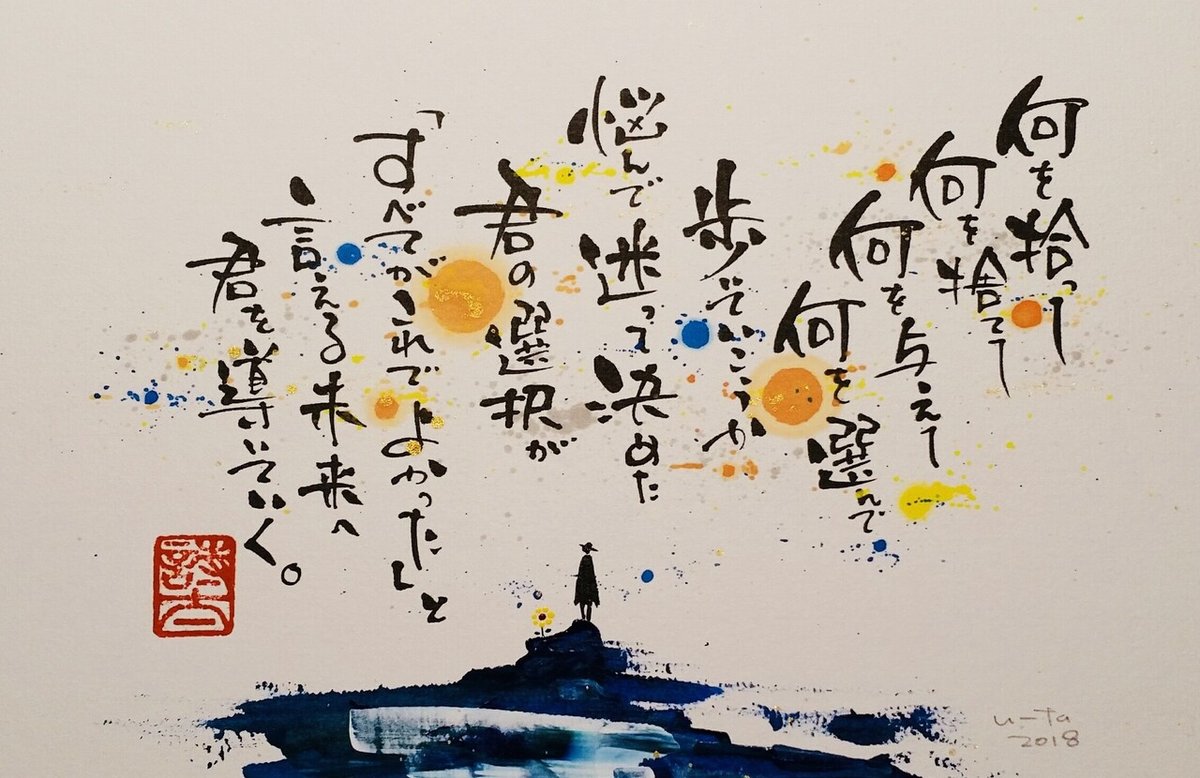 何を拾って
何を捨てて
何を与えて
何を選んで
歩いていこうか
悩んで迷って決めた
君の選択が
「すべてがこれでよかった」と
言える未来へ
君を導いていく。
u-ta
2018